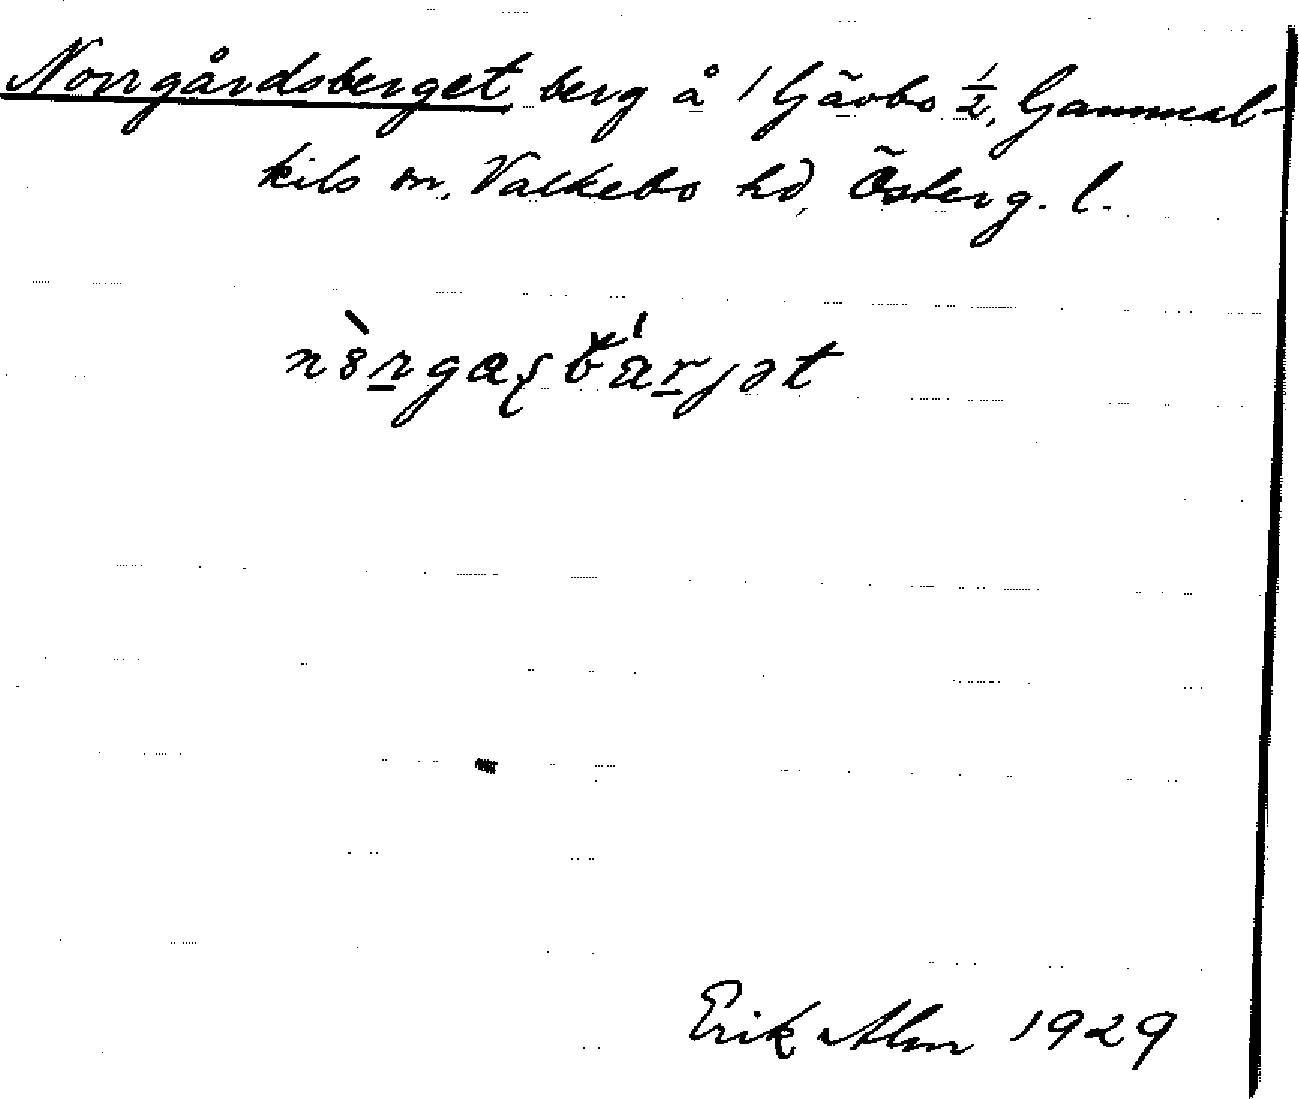 Norrgårdsberget berg å 1 Gävbo 1/2, Gammal-
kils sn, Valkebo hd, Österg. l.
Erik Alm 1929